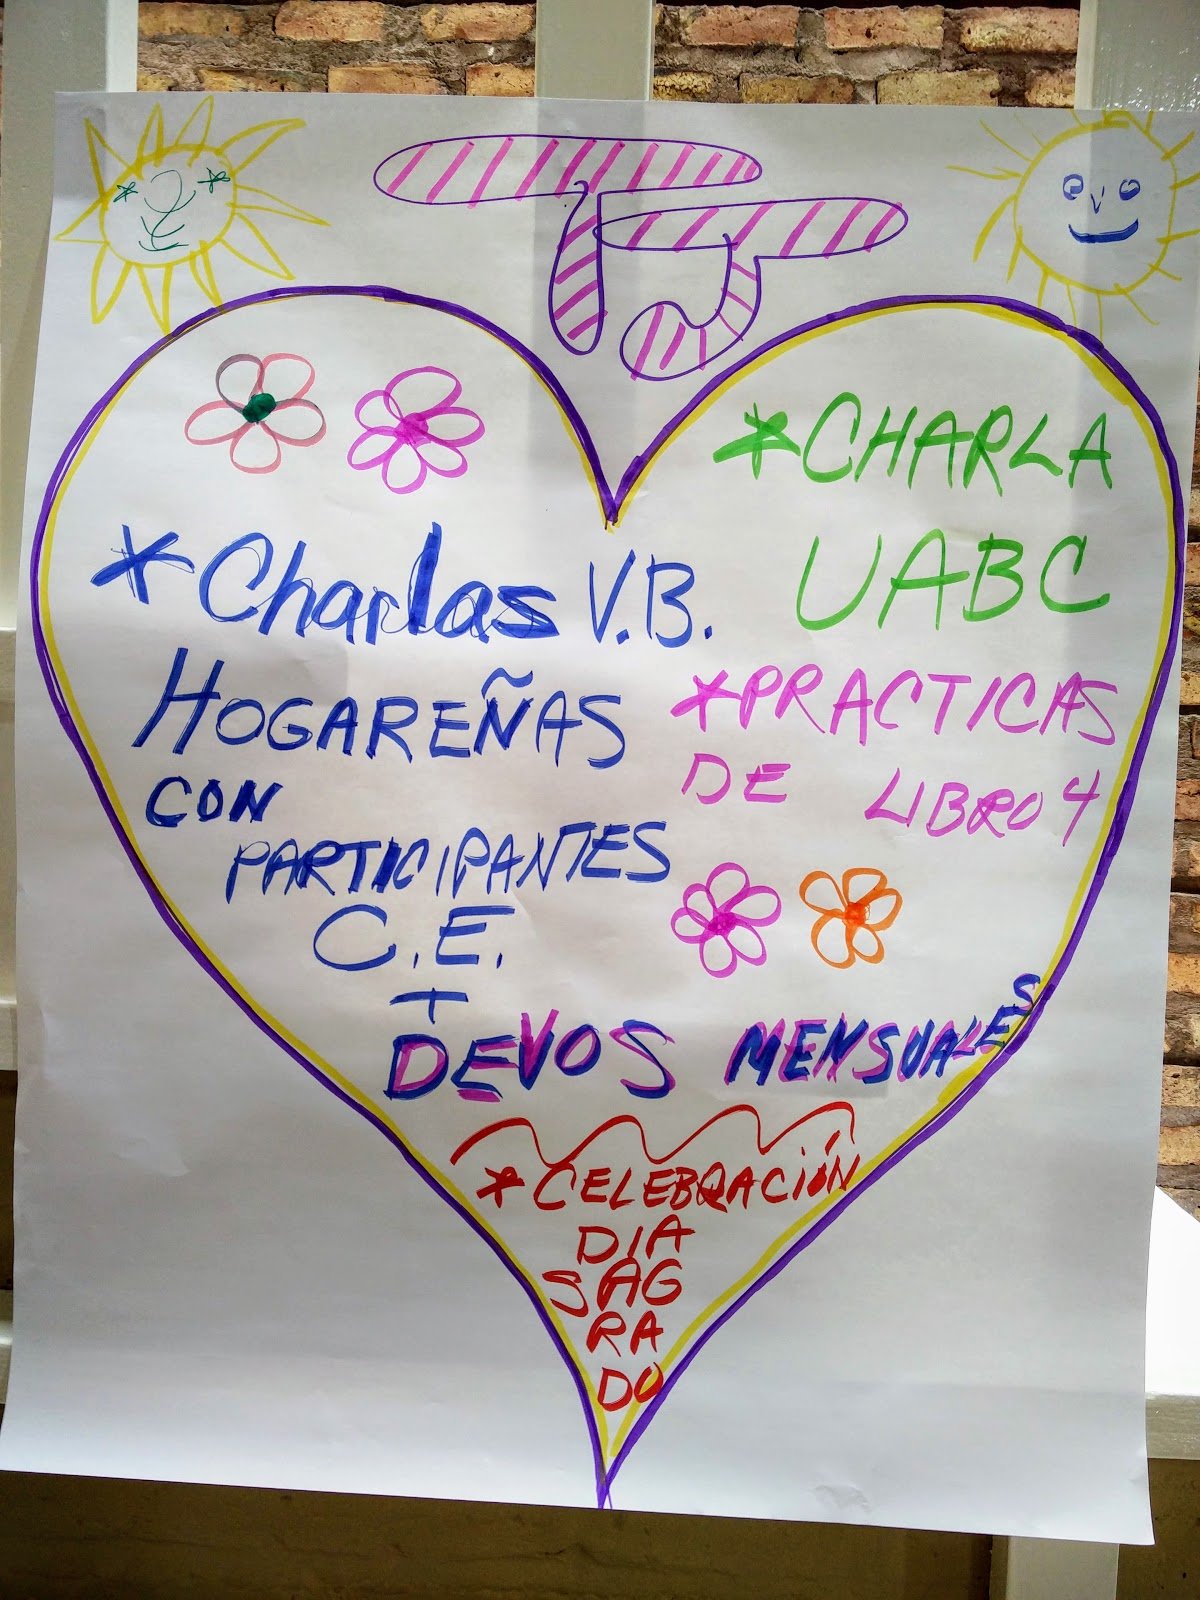 TJ
*Charlas V.B.
HOGAREÑAS
CON
PARTICIPANTES
C.E.
+
DEVOS MENSUALES
*CHARLA
UABC
*PRACTICAS
DE LIBRO 4
*CELEBRACIÓN
DIA
SAG
RA
DO